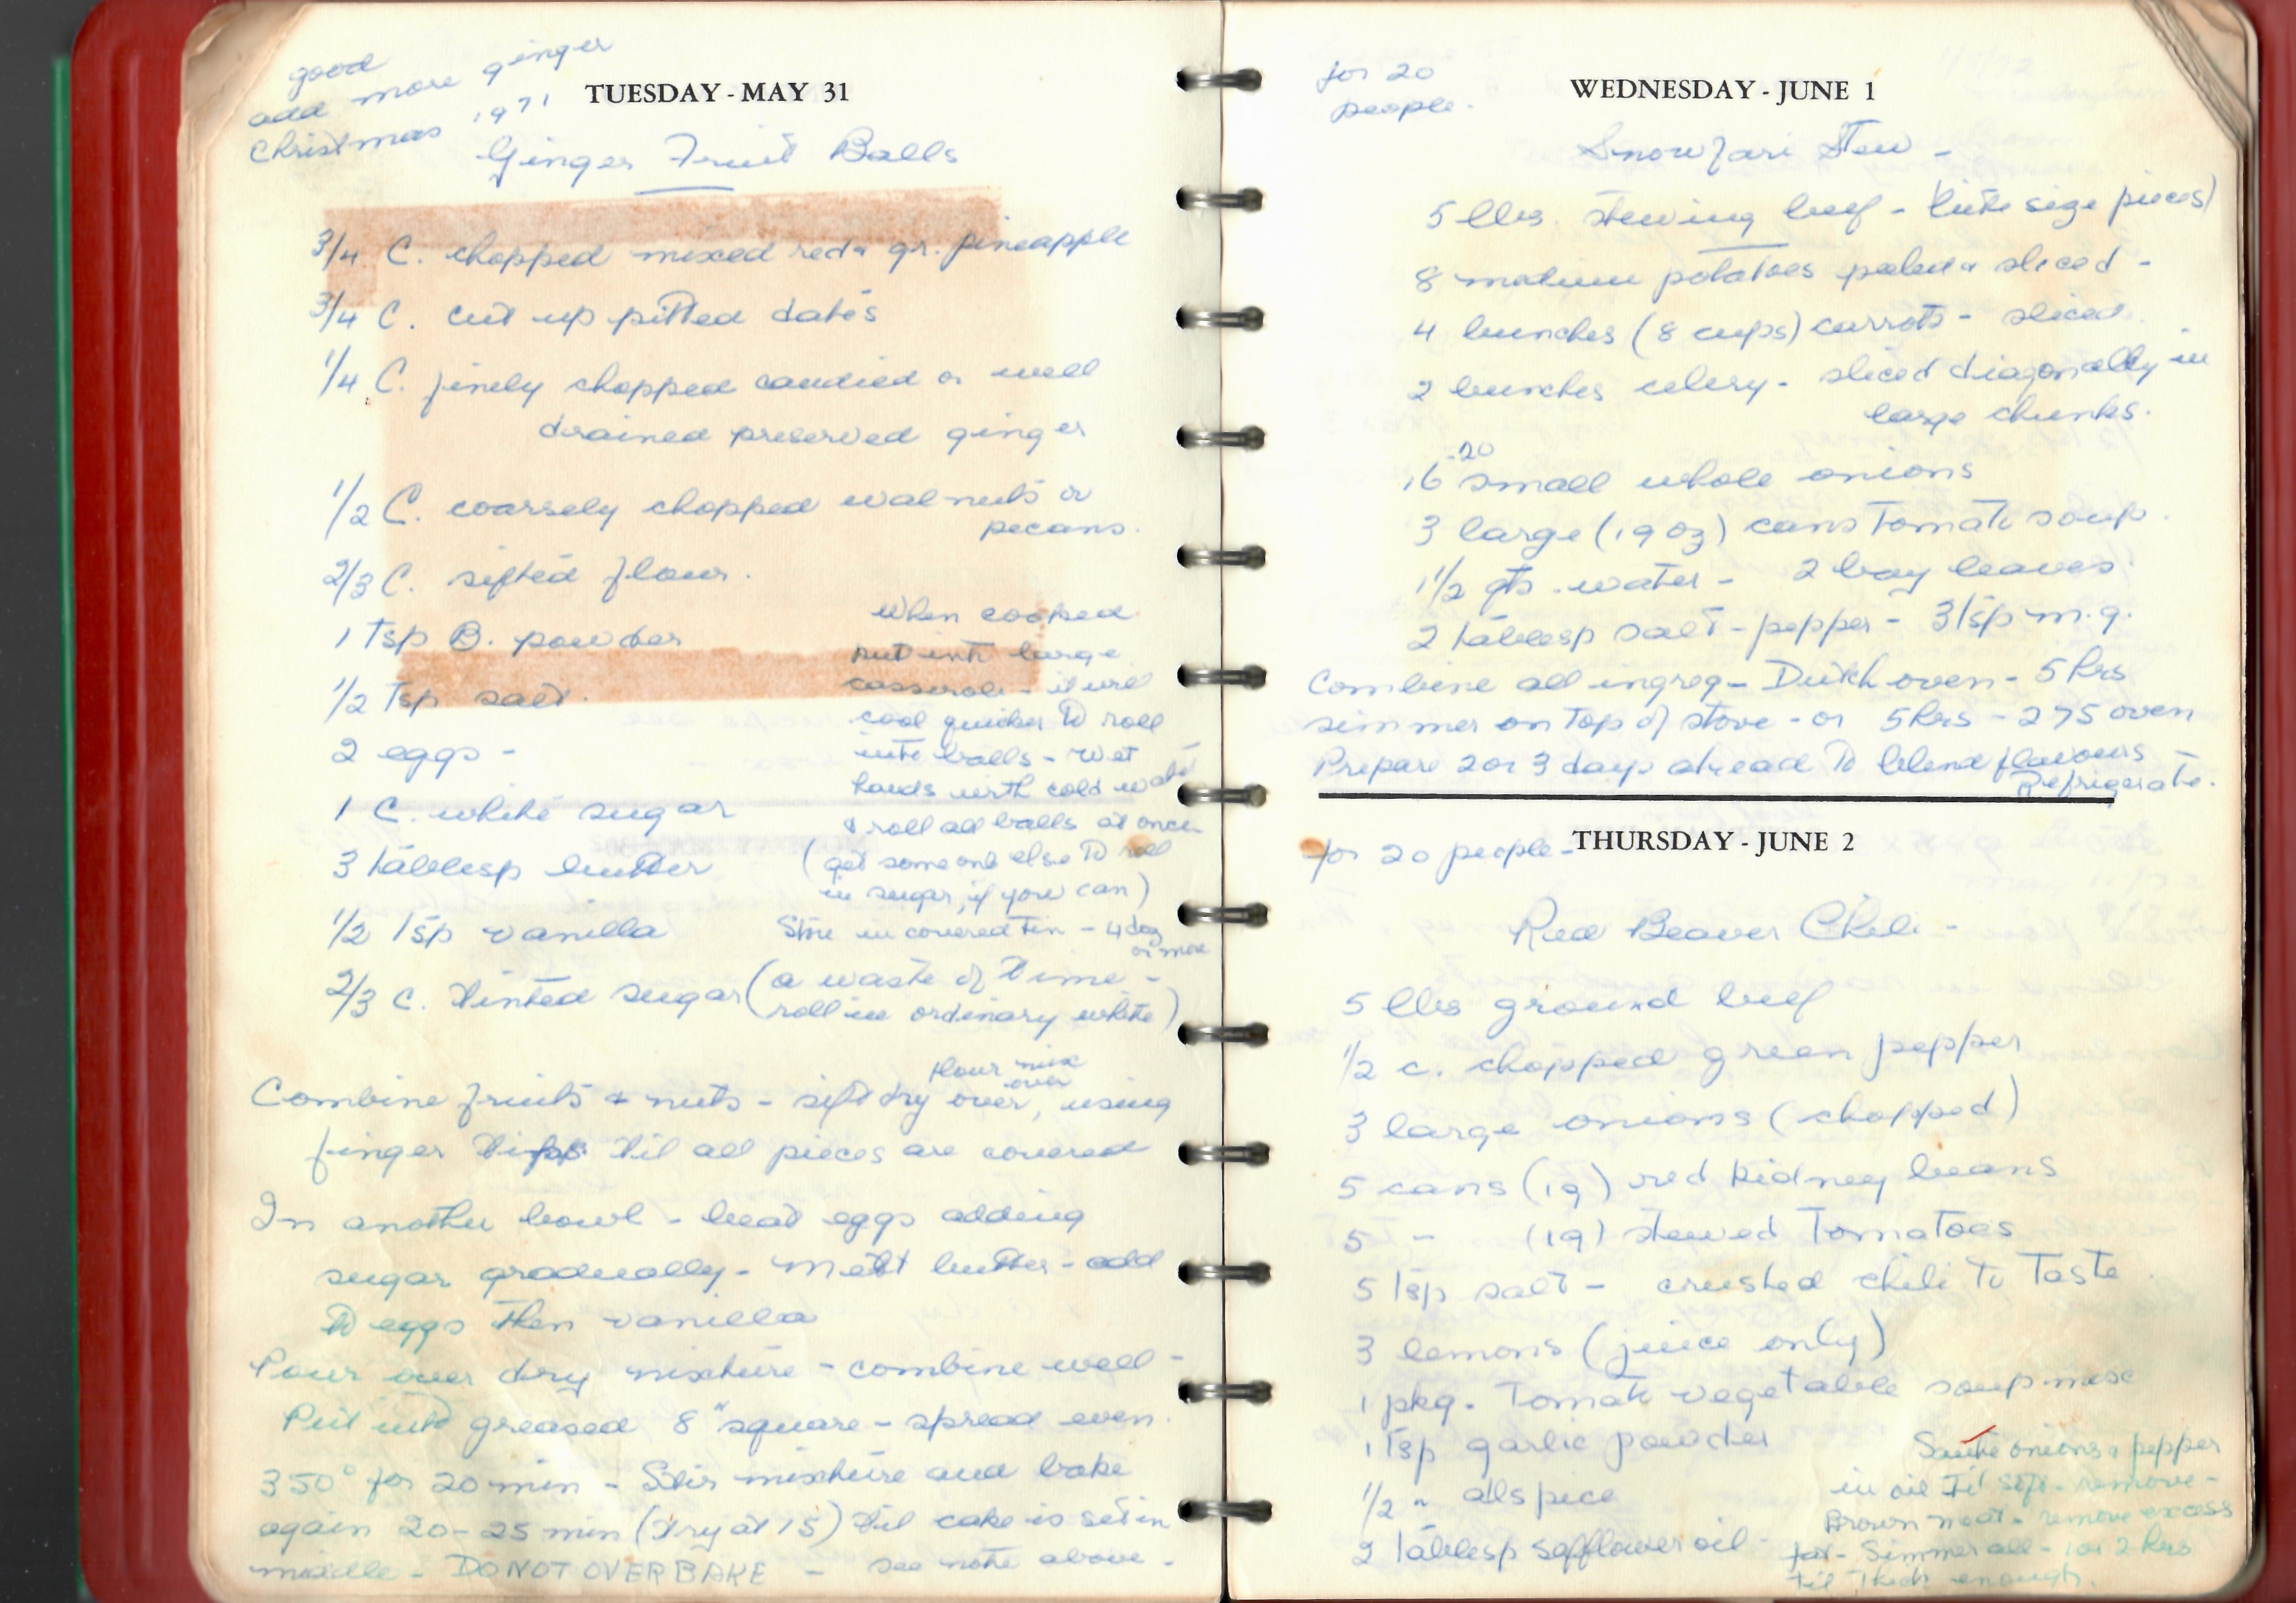 good
add more ginger
Christmas 1971
TUESDAY - MAY 31
Ginger Fruit Balls
3/4 C. chopped mixed red & gr. pineapple
3/4 C. cut up pitted dates
1/4 C. finely chopped candied or well
drained preserved ginger
1/2 C. coarsely chopped walnuts or
pecans.
2/3 C. sifted flour.
1 Tsp B. powder
1/2 Tsp salt.
2 eggs -
1 C. white sugar
3 tablesp butter
1/2 tsp vanilla
2/3 C. tinted sugar (a waste of time -
roll in ordinary white)
when cooked
put into large
casserole - it will
cool quicker to roll
into balls - wet
hands with cold water
& roll all balls at once
(get someone else to roll
in sugar, if you can)
Store in covered tin - 4 day
or more
Combine fruits & nuts - sift dry flour mix over over, using
finger tips til all pieces are covered
In another bowl - beat eggs adding
sugar gradually - Melt butter - add
to eggs then vanilla
Pour over dry mixture - combine well -
Put into greased 8" square - spread even.
350° for 20 min - Stir mixture and bake
again 20-25 min (try at 15) til cake is set in
middle - DO NOT OVERBAKE - see note above -
for 20
people.
WEDNESDAY - JUNE 1
Snowfari Stew -
5 lbs. stewing beef - (bite size pieces)
8 medium potatoes peeled & sliced -
4 bunches (8 cups) carrots - sliced
2 bunches celery - sliced diagonally in
large chunks.
16-20 small whole onions
3 large (19 oz) cans tomato soup.
1 1/2 qts. water - 2 bay leaves
2 tablesp salt - pepper - 3 tsp m.g.
Combine all ingreg - Dutch oven - 5 hrs
simmer on top of stove - or 5 hrs - 275 oven
Prepare 2 or 3 days ahead to blend flavours -
Refrigerate.
THURSDAY - JUNE 2
for 20 people -
Red Beaver Chili -
5 lbs ground beef
1/2 c. chopped green pepper
3 large onions (chopped)
5 cans (19) red kidney beans
5 " (19) stewed tomatoes
5 tsp salt - crushed chili to taste
3 lemons (juice only)
1 pkg. tomato vegetable soup mix
1 tsp garlic powder
1/2 " alspice
2 tablesp safflower oil -
Saute onions & pepper
in oil til soft - remove -
Brown meat - remove excess
fat - Simmer all - 1 or 2 hrs
til thick enough.